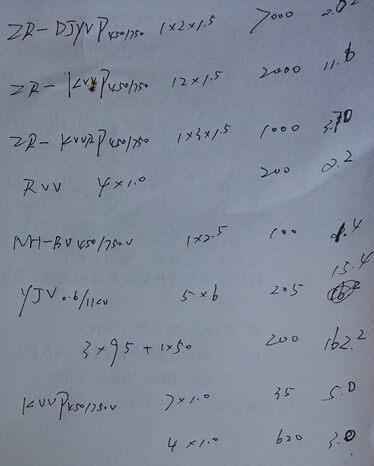 ZR-DJYVP450/750 1x2x1.5 7000
ZR-KVVP450/750 12x1.5 2000 11.6
ZR-KVVRP450/750 1x3x1.5 1000
RVV 4x1.0 200 2.2
NH-BV450/750V 1x2.5 100
15.4
YJV0.6/1KV 5x6 205
3x95+1x50 200 162.2
KVVP450/750V 7x1.0 35 5.0
4x1.0 620 3.0